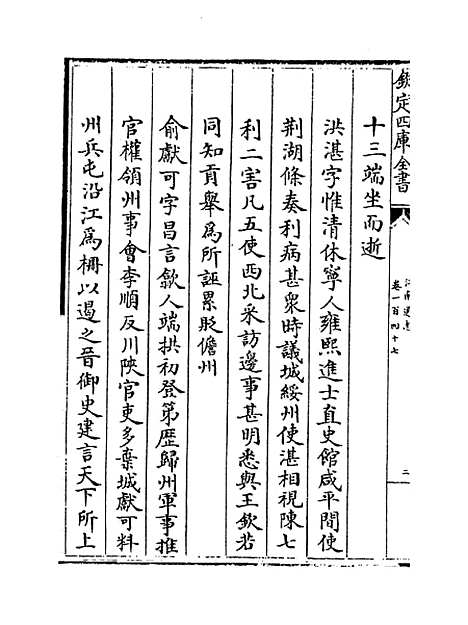 欽定四庫全書
江南通志
卷一百四十七
二
十三端坐而逝
洪湛字惟清休寧人雍熙進士直史館咸平間使
荆湖條奏利病甚衆時議城綏州使湛相視陳七
利二害凡五使西北采訪邊事甚明悉與王欽若
同知貢舉爲所誣累貶儋州
俞獻可字昌言歙人端拱初登第歴歸州軍事推
官權領州事會李順反川陝官吏多棄城獻可料
州兵屯沿江爲柵以遏之晉御史建言天下所上